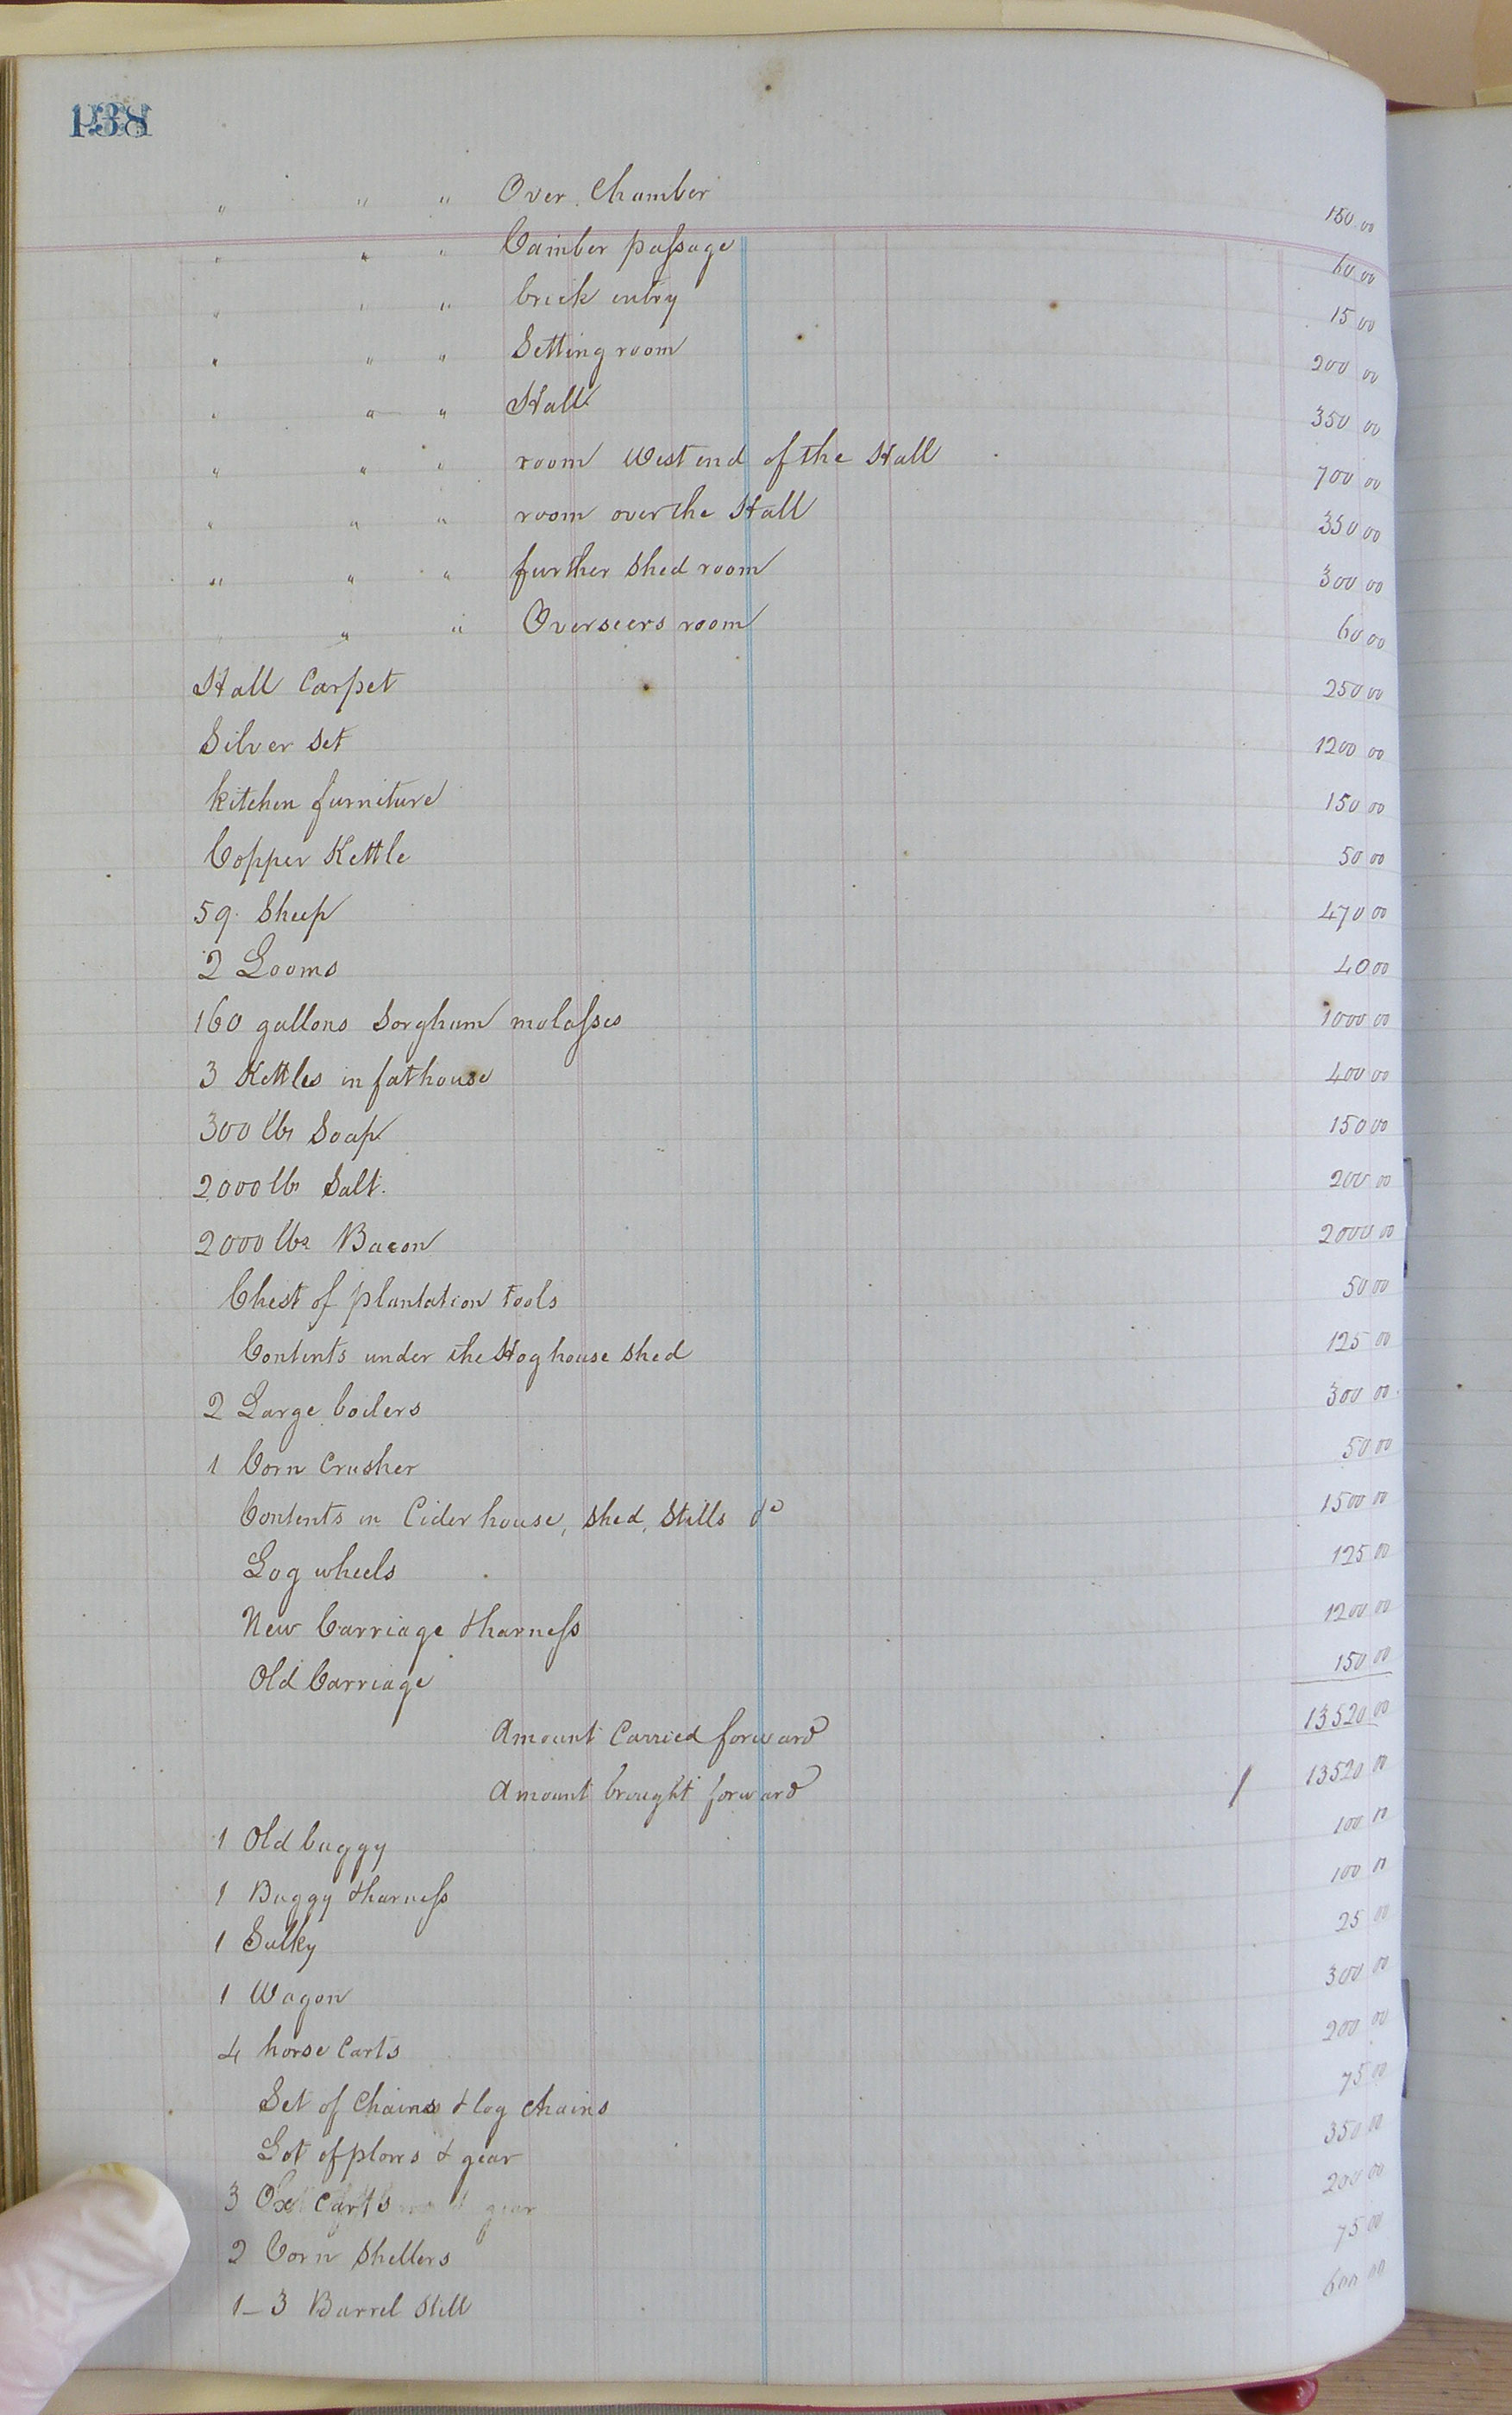 138
" " " Over Chamber 150 00
" " " Camber passage 60 00
" " " brick entry 15 00
" " " Setting room 200 00
" " " Hall 350 00
" " " room West end of the Hall 700 00
" " " room over the Hall 350 00
" " " further Shed room 300 00
" " Overseers room 60 00
Hall Carpet 250 00
Silver Set 1200 00
kitchen furniture 150 00
Copper Kettle 50 00
59 Sheep 470 00
2 Looms 40 00
160 gallons Sorghum molasses 1000 00
3 Kettles in fathouse 400 00
300 lbs Soap 150 00
2000 lbs Salt. 200 00
2000 lbs Bacon 2000 00
Chest of plantation tools 50 00
Contents under the Hoghouse Shed 125 00
2 Large boilers 300 00
1 Corn Crusher 50 00
Contents in Cider house, Shed, Stills &c 1500 00
Log wheels 125 00
New Carriage & harness 1200 00
Old Carriage 150 00
Amount Carried forward 13520 00
Amount brought forward 13520 00
1 Old buggy 100 00
1 Buggy & harness 100 00
1 Sulky 25 00
1 Wagon 300 00
4 horse Carts 200 00
Set of Chains & log chains 75 00
Lot of plows & gear 350 00
3 Ox Carts 200 00
2 Corn Shellers 75 00
1_3 Barrel Still 600 00